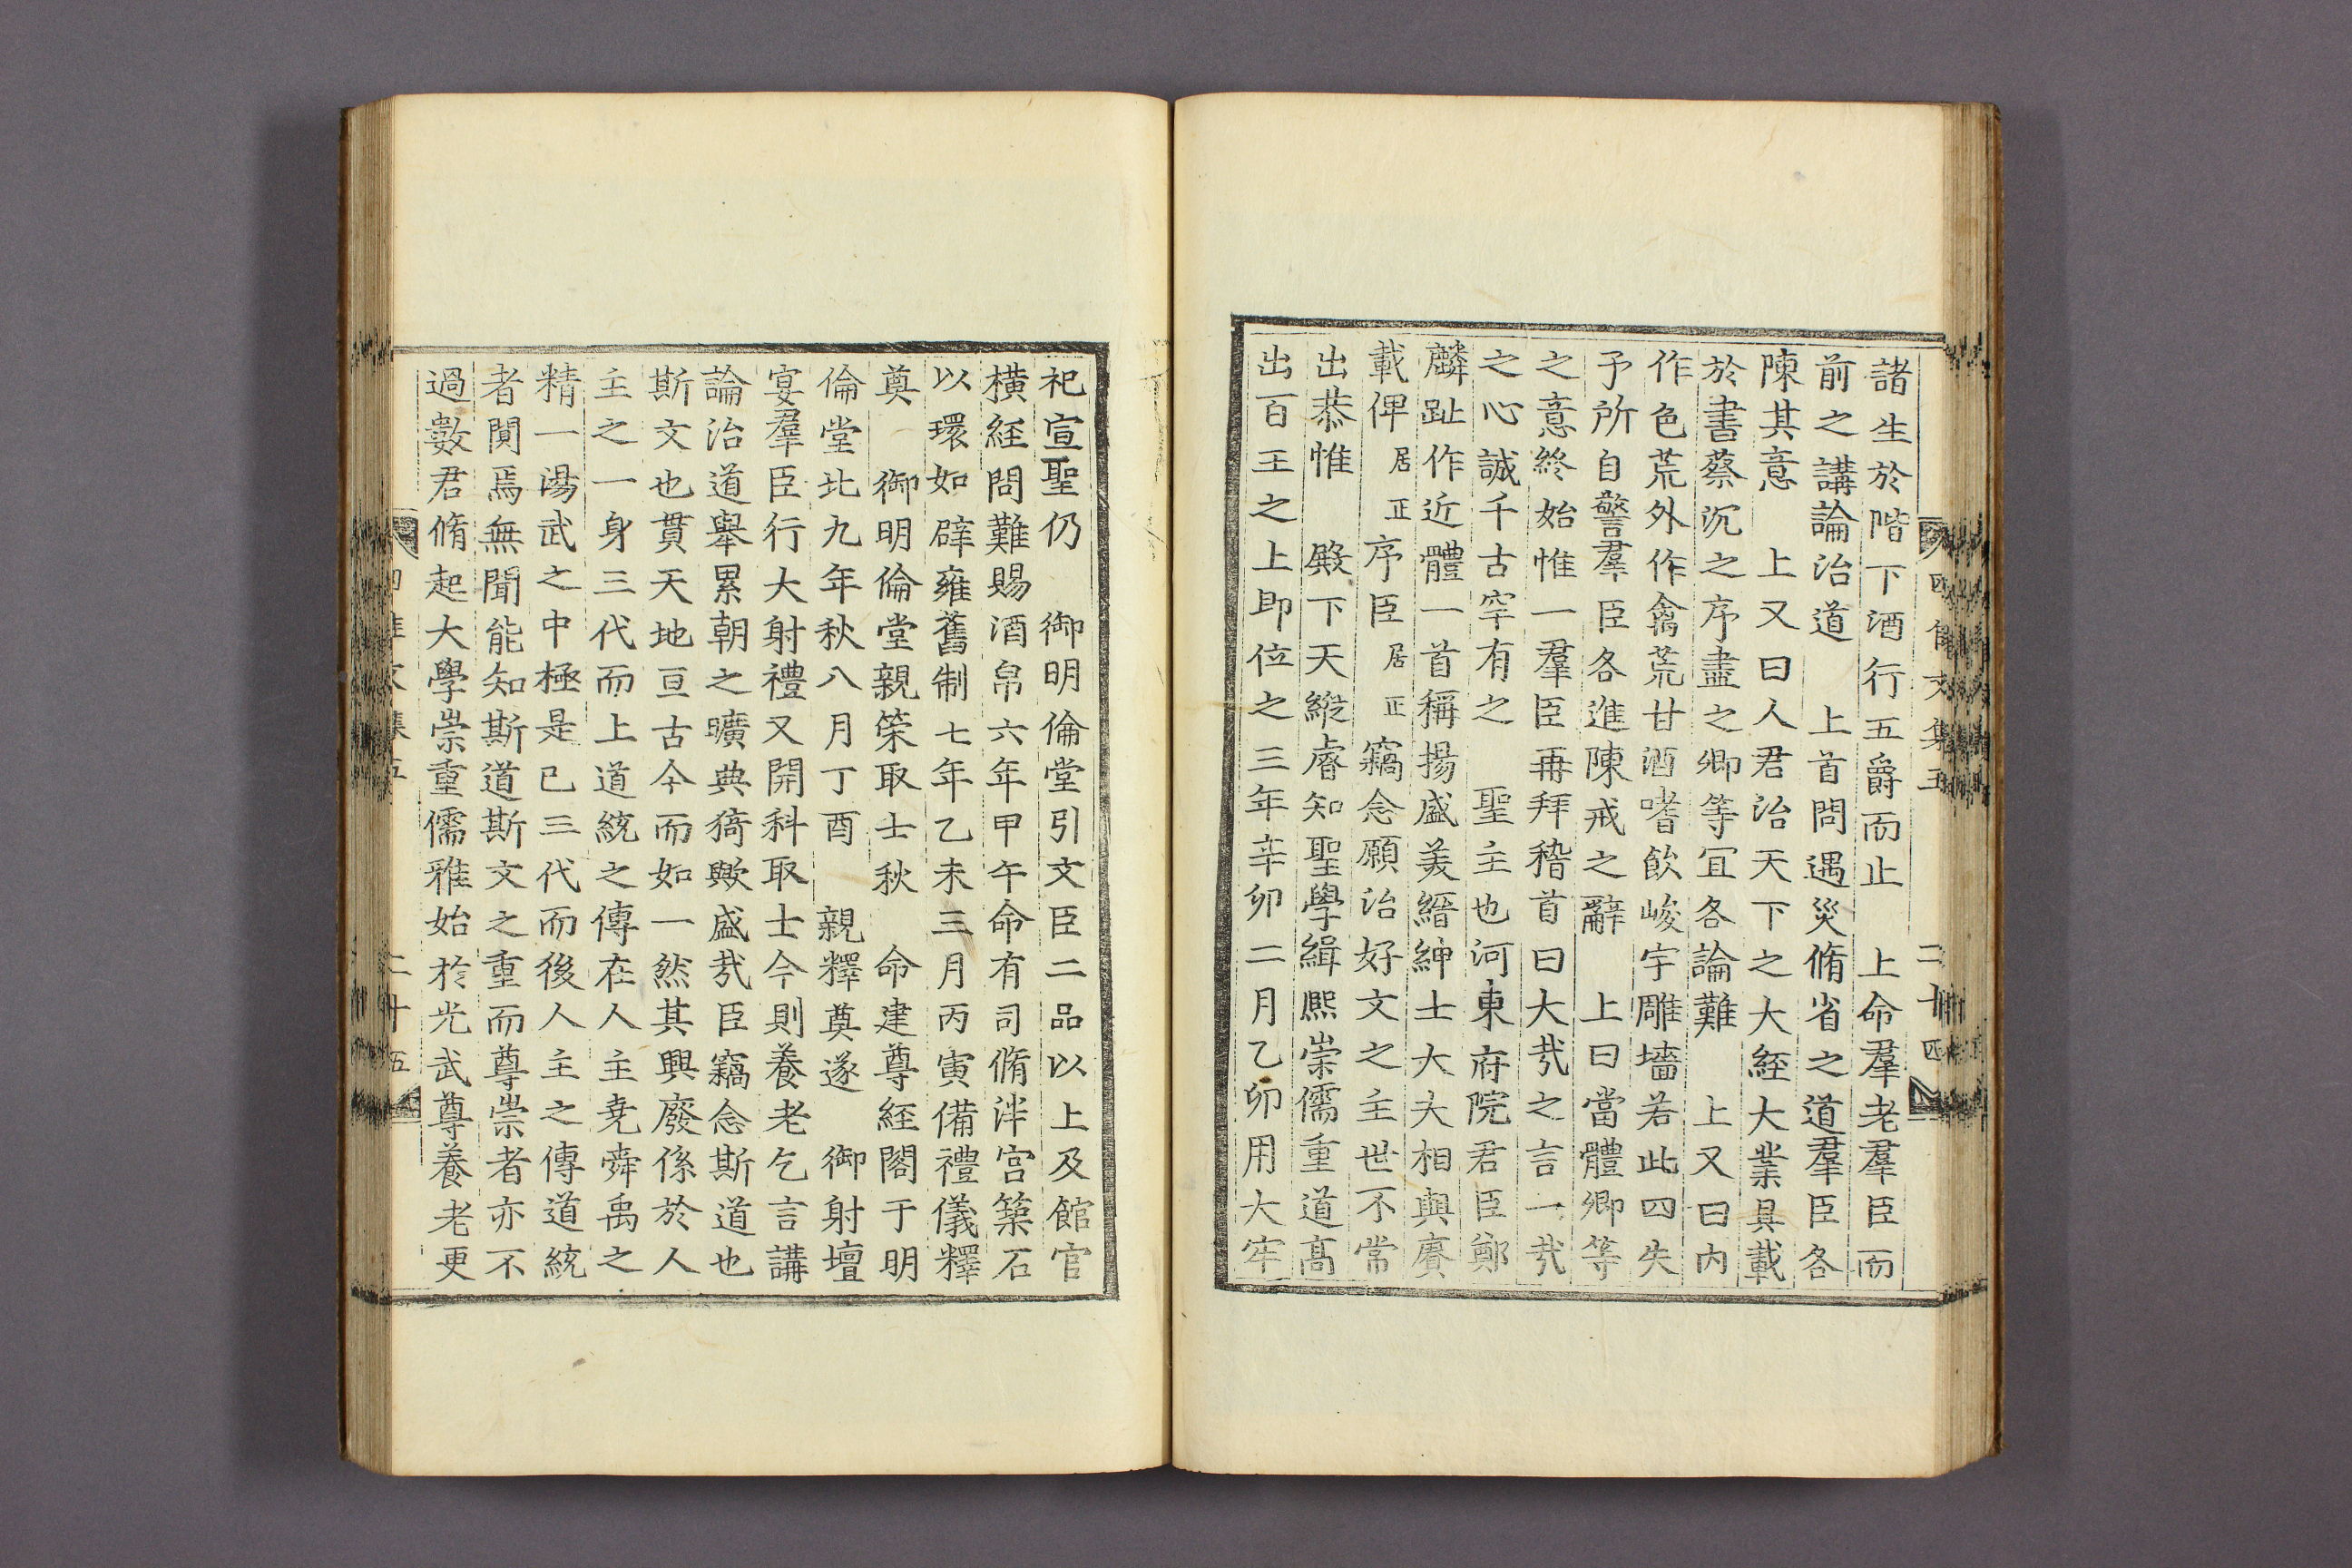 諸生於階下酒行五爵而止　上命羣老羣臣而
前之講論治道　上首問遇災脩省之道羣臣各
陳其意　上又曰人君治天下之大経大業具載
於書蔡沉之序盡之卿等宜各論難　上又曰内
作色荒外作禽荒甘酒嗜飲峻宇雕墻若此四失
予所自警羣臣各進陳戒之辭　上曰當體卿等
之意終始惟一羣臣再拜稽首曰大㢤之言一㢤
之心誠千古罕有之　聖主也河東府院君臣鄭
麟趾作近體一首稱揚盛美縉紳士大夫相與賡
載俾居正序臣居正竊念願治好文之主世不常
出恭惟　殿下天縱睿知聖學緝熈崇儒重道髙
出百王之上即位之三年辛卯二月乙卯用大牢
四佳文集五　二十四
祀宣聖仍　御明倫堂引文臣二品以上及館官
橫経問難賜酒帛六年甲午命有司脩泮宮築石
以環如辟雍舊制七年乙未三月丙寅備禮儀釋
奠　御明倫堂親策取士秋　命建尊経閣于明
倫堂北九年秋八月丁酉　親釋奠遂　御射壇
宴羣臣行大射禮又開科取士今則養老乞言講
論治道舉累朝之曠典猗歟盛㢤臣竊念斯道也
斯文也貫天地亘古今而如一然其興廢係於人
主之一身三代而上道統之傳在人主尭舜禹之
精一湯武之中極是已三代而後人主之傳道統
者闃焉無聞能知斯道斯文之重而尊崇者亦不
過數君脩起大學崇重儒雅始於光武尊養老更
四佳文集五　二十五